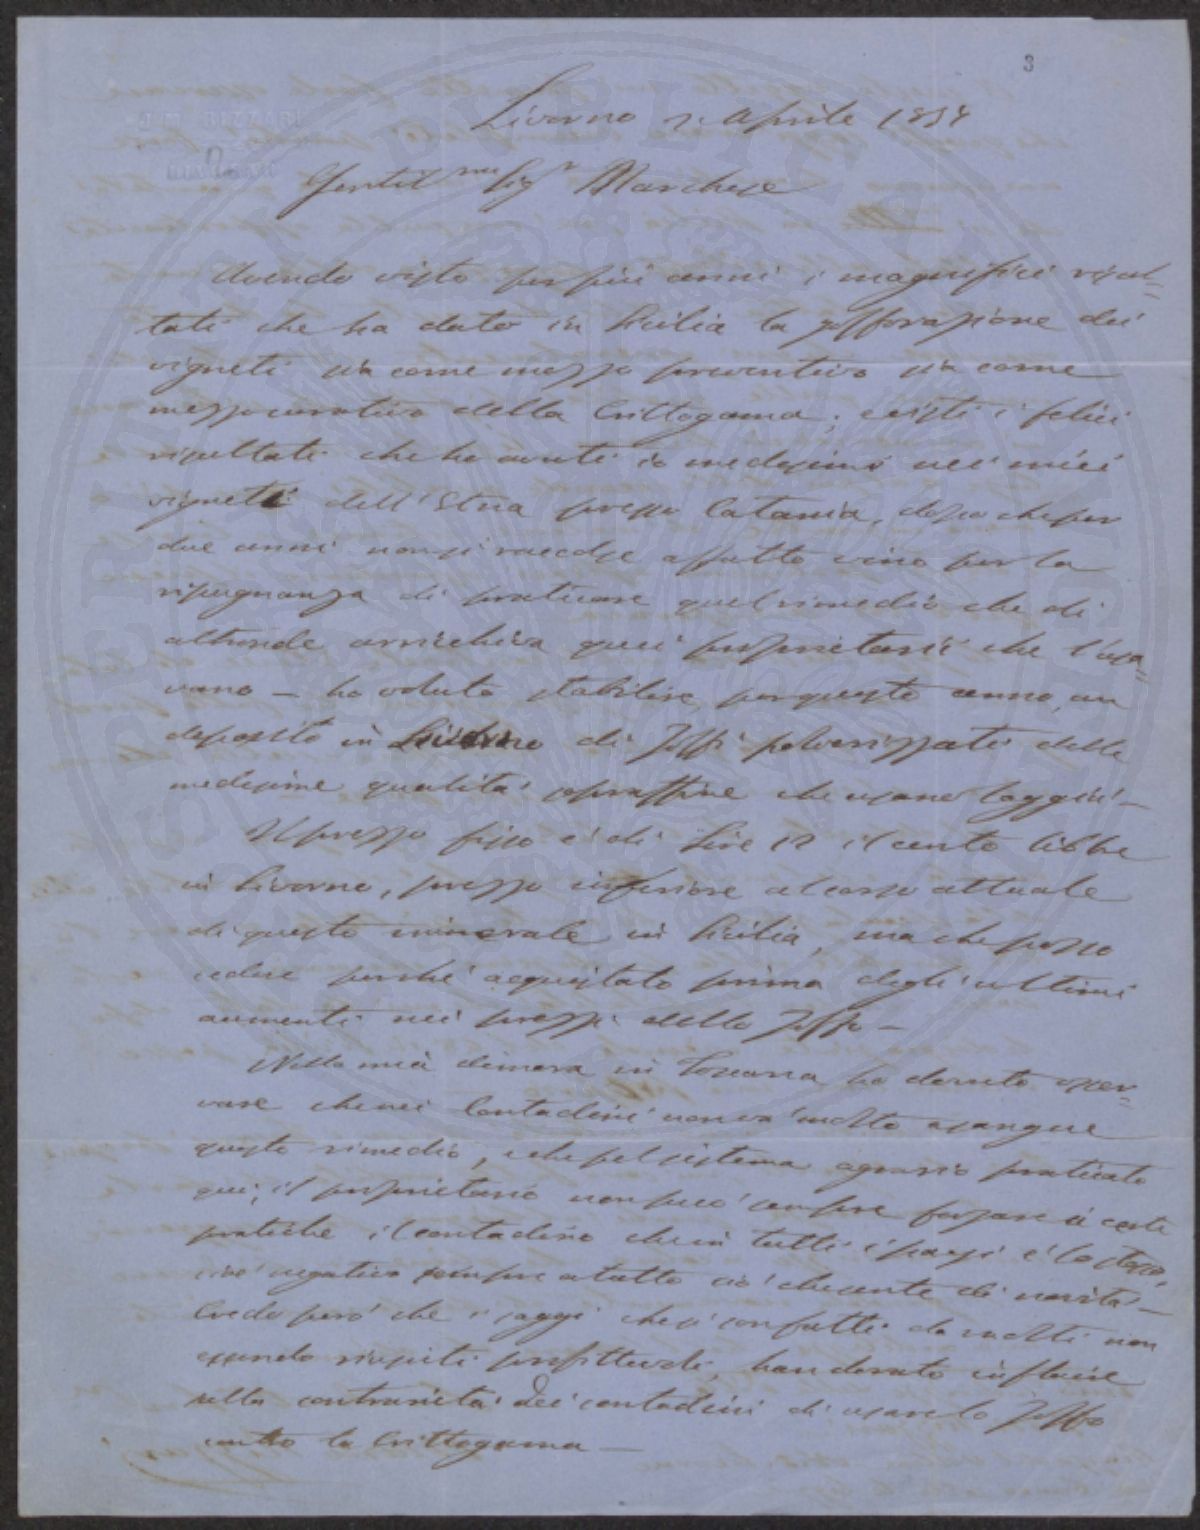 3
Livorno 2. Aprile 1858
Gentil.mo Sig.r Marchese
Avendo visto per più anni i magnifici risul=
tati che ha dato in Sicilia la zolforazione dei
vigneti sia come mezzo preventivo sia come
mezzo curativo della Crittogama; e visti i felici
risultati che ho avuti io medesimo nei miei
vigneti dell'Etna presso Catania, dopo che per
due anni non si raccolse affatto vino per la
ripugnanza di praticare quel rimedio che di
altronde arricchiva quei proprietarii che l'usa=
vano — ho voluto stabilire, per questo anno, un
deposito in Livorno di Zolfi polverizzati della
medesime qualità sopraffine che usano laggiù —
Il prezzo fisso è di Lire 12 il cento libbre
in Livorno, prezzo inferiore al corso attuale
di questo minerale in Sicilia, ma che posso
cedere perché acquistato prima degli ultimi
aumenti nei prezzi dello Zolfo —
Nella mia dimora in Toscana ho dovuto osser=
vare che nei Contadini non va molto a sangue
questo rimedio, e che pel sistema agrario praticato
qui, il proprietario non può sempre forzare a certe
pratiche il contadino che in tutti i paesi è lo stesso,
cioè negativo sempre a tutto ciò che sente di novità —
Credo però che i saggi che si son fatti da molti non
essendo riusciti profittevoli, han dovuto influire
sulla contrarietà dei contadini di usare lo Zolfo
contro la Crittogama —